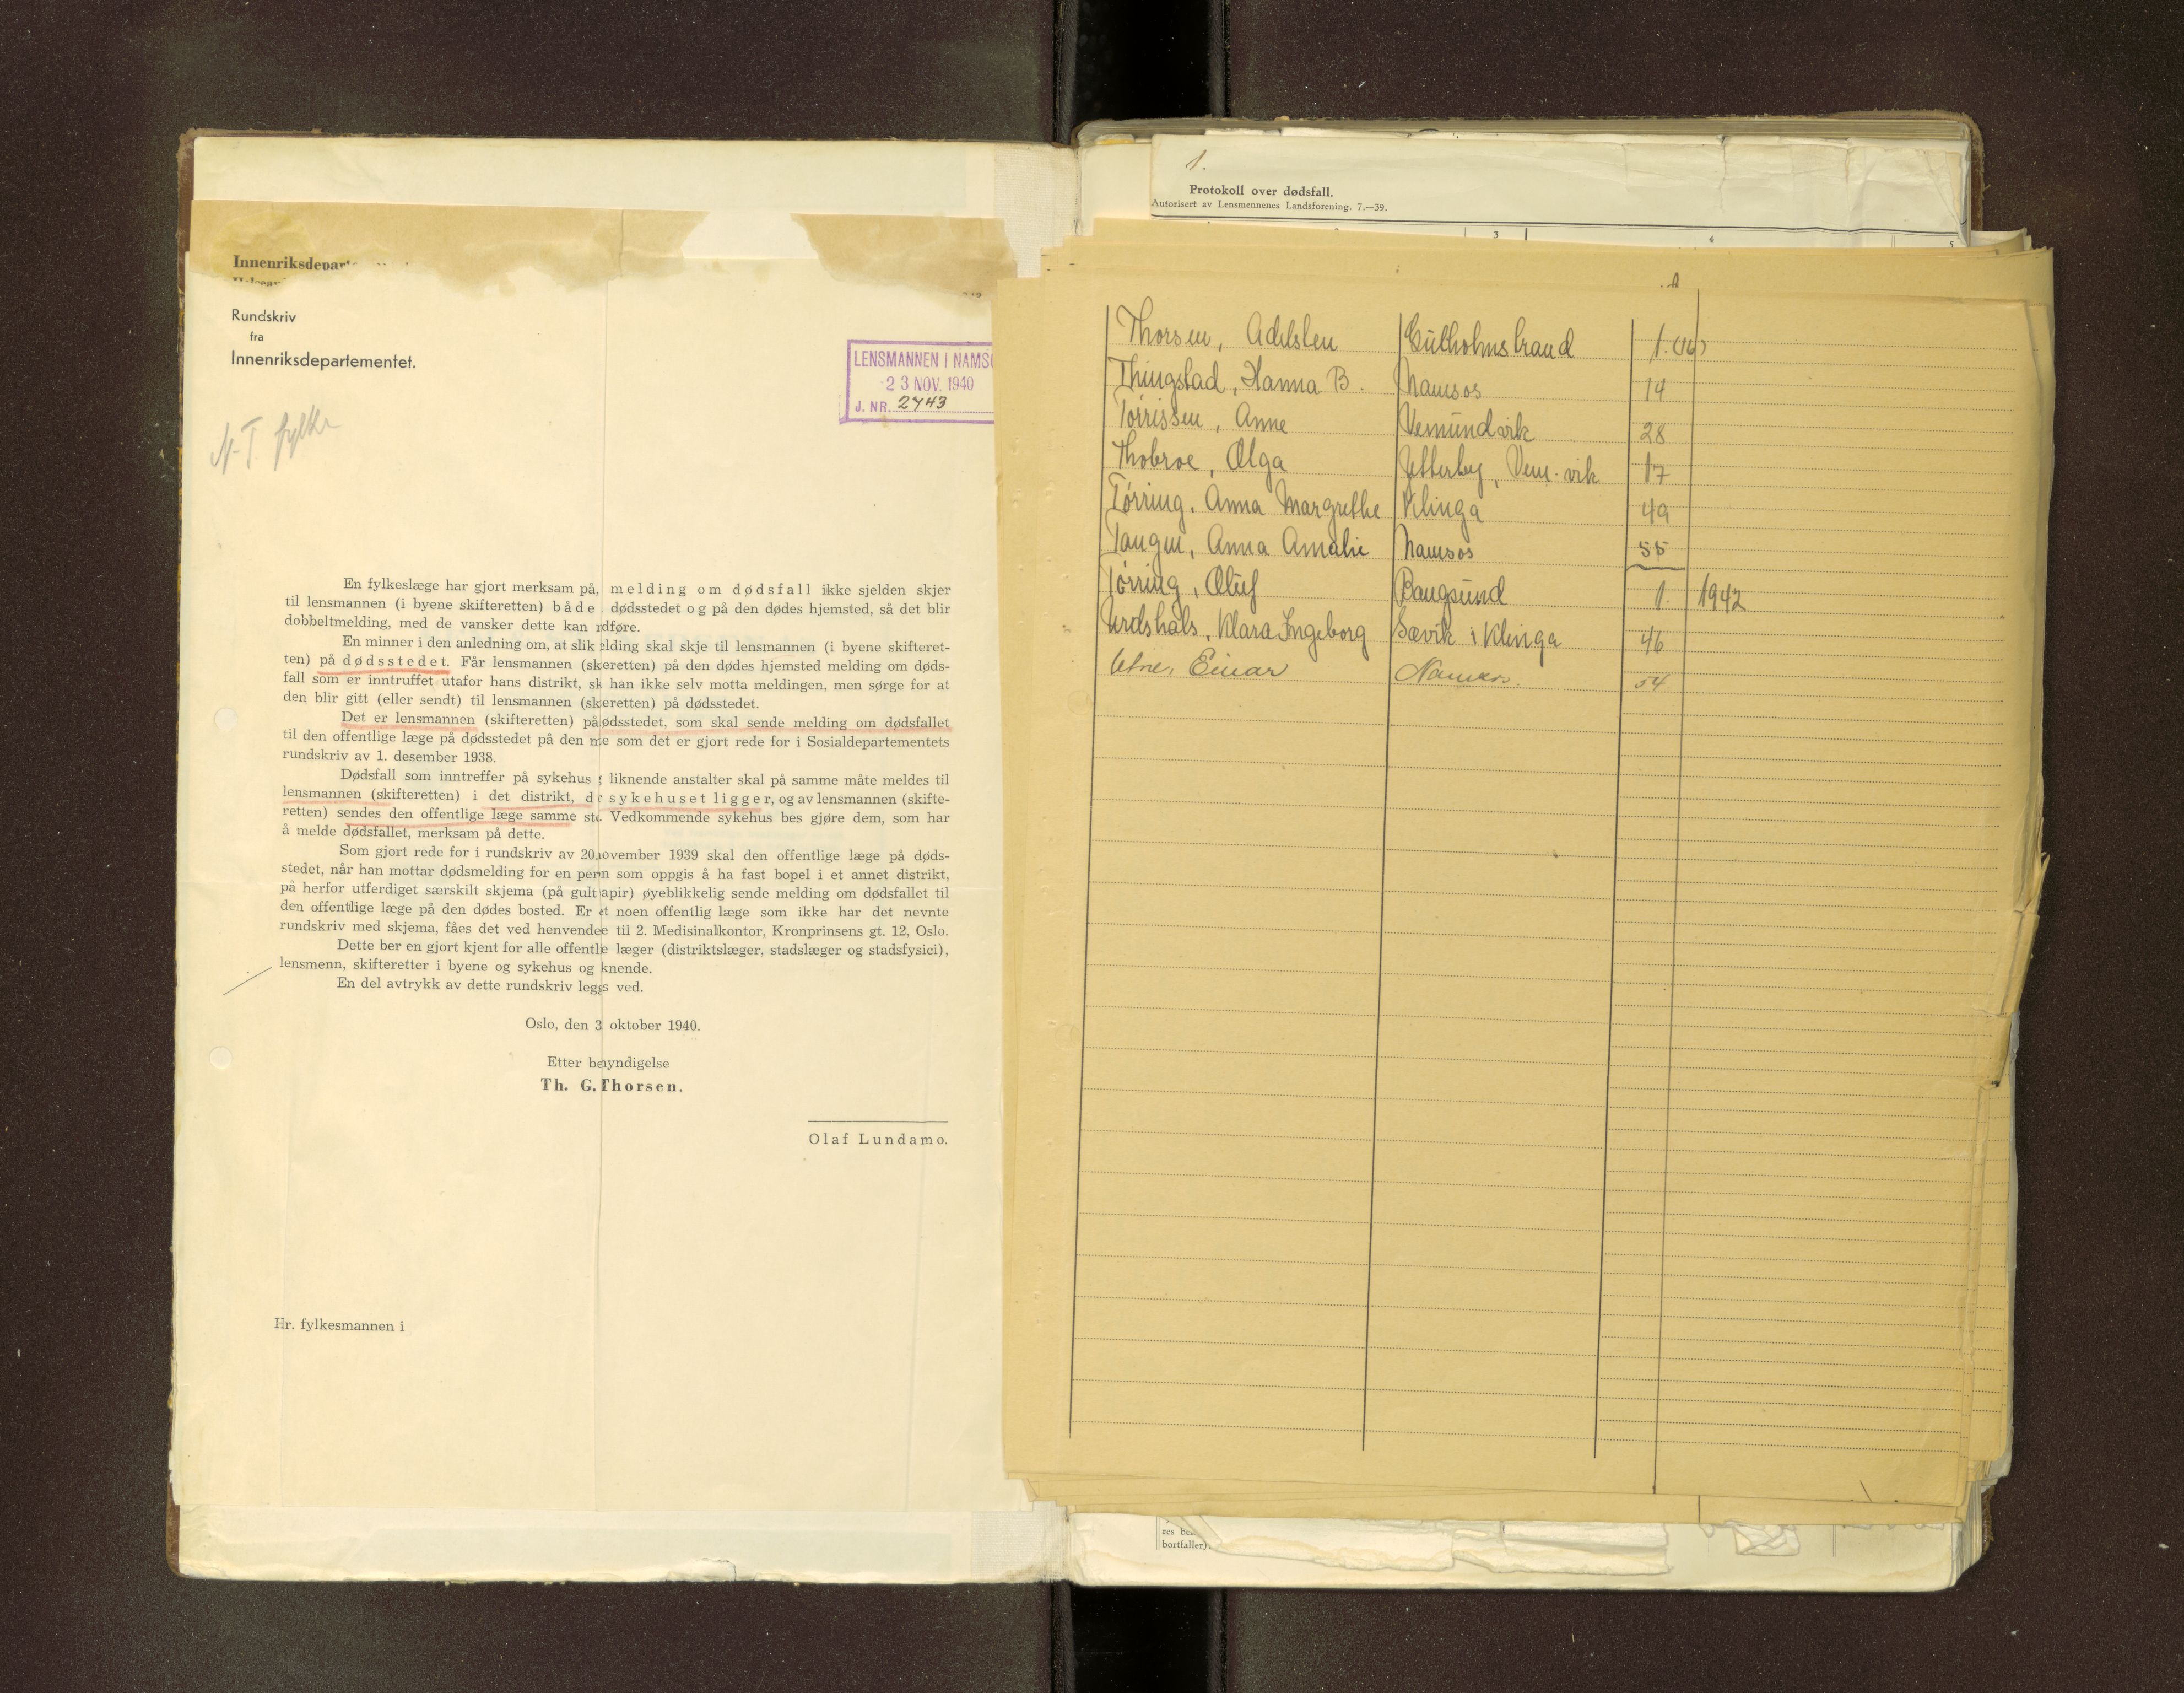 Innenriksdepart
Rundskriv
fra
Innenriksdepartementet.
LENSMANNEN I NAMSO
23 NOV. 1940
J. NR. 2743
N-T. fylke
En fylkeslæge har gjort merksam på, melding om dødsfall ikke sjelden skjer
til lensmannen (i byene skifteretten) både dødsstedet og på den dødes hjemsted, så det blir
dobbeltmelding, med de vansker dette kan dføre.
En minner i den anledning om, at slik elding skal skje til lensmannen (i byene skifteret-
ten) på dødsstedet. Får lensmannen (skeretten) på den dødes hjemsted melding om døds-
fall som er inntruffet utafor hans distrikt, sk han ikke selv motta meldingen, men sørge for at
den blir gitt (eller sendt) til lensmannen (skeretten) på dødsstedet.
Det er lensmannen (skifteretten) på ødsstedet, som skal sende melding om dødsfallet
til den offentlige læge på dødsstedet på den me som det er gjort rede for i Sosialdepartementets
rundskriv av 1. desember 1938.
Dødsfall som inntreffer på sykehus liknende anstalter skal på samme måte meldes til
lensmannen (skifteretten) i det distrikt, de sykehuset ligger, og av lensmannen (skifte-
retten) sendes den offentlige læge samme ste. Vedkommende sykehus bes gjøre dem, som har
å melde dødsfallet, merksam på dette.
Som gjort rede for i rundskriv av 20. ovember 1939 skal den offentlige læge på døds-
stedet, når han mottar dødsmelding for en penn som oppgis å ha fast bopel i et annet distrikt,
på herfor utferdiget særskilt skjema (på gult apir) øyeblikkelig sende melding om dødsfallet til
den offentlige læge på den dødes bosted. Er et noen offentlig læge som ikke har det nevnte
rundskriv med skjema, fåes det ved henvendee til 2. Medisinalkontor, Kronprinsens gt. 12, Oslo.
Dette ber en gjort kjent for alle offentlie læger (distriktslæger, stadslæger og stadsfysici),
lensmenn, skifteretter i byene og sykehus og knende.
En del avtrykk av dette rundskriv legges ved.
Oslo, den 3 oktober 1940.
Etter bemyndigelse
Th. G. Thorsen.
Olaf Lundamo.
Hr. fylkesmannen i
1.
Protokoll over dødsfall.
Autorisert av Lensmennenes Landsforening. 7.—39.
3 4 5
Thorsen, Adelsten Gulholmstrand 1. (16)
Thingstad, Hanna B. Namsos 14
Tørrissen, Anne Vemundvik 28
Thobroe, Olga Ytterby, Vem.vik 17
Tørring, Anna Margrethe Klinga 49
Tangen, Anna Amalie Namsos 55
Tørring, Oluf Bangsund 1. 1942
Urdshals, Klara Ingeborg Sævik i Klinga 46
Utne, Einar Namsos. 54
bortfaller).